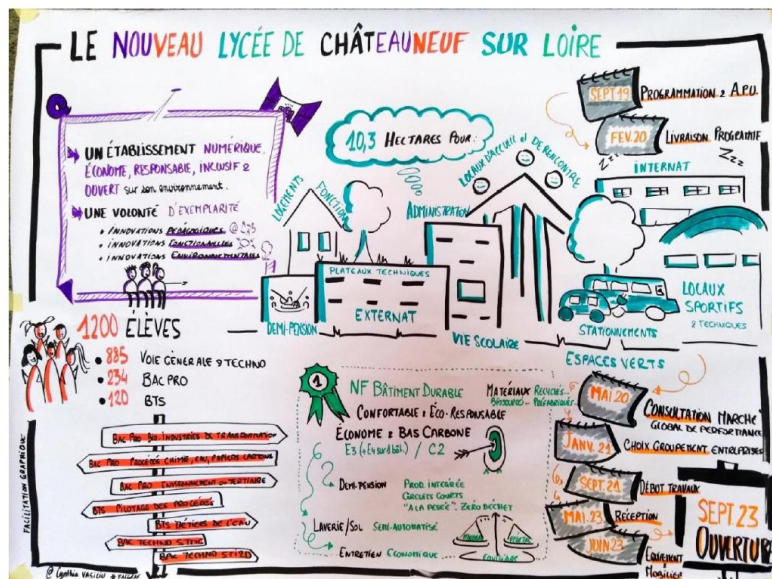 LE NOUVEAU LYCÉE DE CHÂTEAUNEUF SUR LOIRE
UN ÉTABLISSEMENT NUMÉRIQUE,
ÉCONOME, RESPONSABLE, INCLUSIF &
OUVERT sur son environnement.
UNE VOLONTÉ D'EXEMPLARITÉ
• INNOVATIONS PÉDAGOGIQUES
• INNOVATIONS FONCTIONNELLES
• INNOVATIONS ENVIRONNEMENTALES
10,3 HECTARES POUR:
LOGEMENTS
FONCTION
ADMINISTRATION
LOCAUX D'ACCUEIL et DE RENCONTRE
PLATEAUX TECHNIQUES
EXTERNAT
DEMI-PENSION
VIE SCOLAIRE
STATIONNEMENTS
ESPACES VERTS
INTERNAT
LOCAUX
SPORTIFS
& TECHNIQUES
SEPT 19 PROGRAMMATION & A.P.U.
FEV. 20 LIVRAISON PROGRAMME
ZZZ
ZZZ
1200 ÉLÈVES
• 885 VOIE GÉNÉRALE & TECHNO
• 234 BAC PRO
• 120 BTS
BAC PRO BIO INDUSTRIES DE TRANSFORMATION
BAC PRO PROCÉDÉ CHIMIE, EAU, PAPIERS CARTONS
BAC PRO ENVIRONNEMENT TERTIAIRE
BTS PILOTAGE DES PROCÉDÉS
BTS MÉTIERS DE L'EAU
BAC TECHNO STMG
BAC TECHNO STI2D
1
NF BÂTIMENT DURABLE
CONFORTABLE & ÉCO-RESPONSABLE
ÉCONOME & BAS CARBONE
E3 / C2
MATÉRIAUX RECYCLÉS -
BIOSOURCÉS - PRÉFABRIQUÉS
DEMI-PENSION
PROD. INTÉGRÉE
CIRCUITS COURTS
"A LA PESÉE", ZÉRO DÉCHET
LAVERIE/SOL SEMI-AUTOMATISÉ
ENTRETIEN ÉCONOMIQUE
MAI 20 CONSULTATION MARCHÉ
GLOBAL DE PERFORMANCE
JANV. 21 CHOIX GROUPEMENT ENTREPRISES
SEPT 21 DÉBUT TRAVAUX
MAI 23 RÉCEPTION
JUIN 23 ÉQUIPEMENT
MOBILIER
SEPT 23
OUVERTURE
FACILITATION GRAPHIQUE